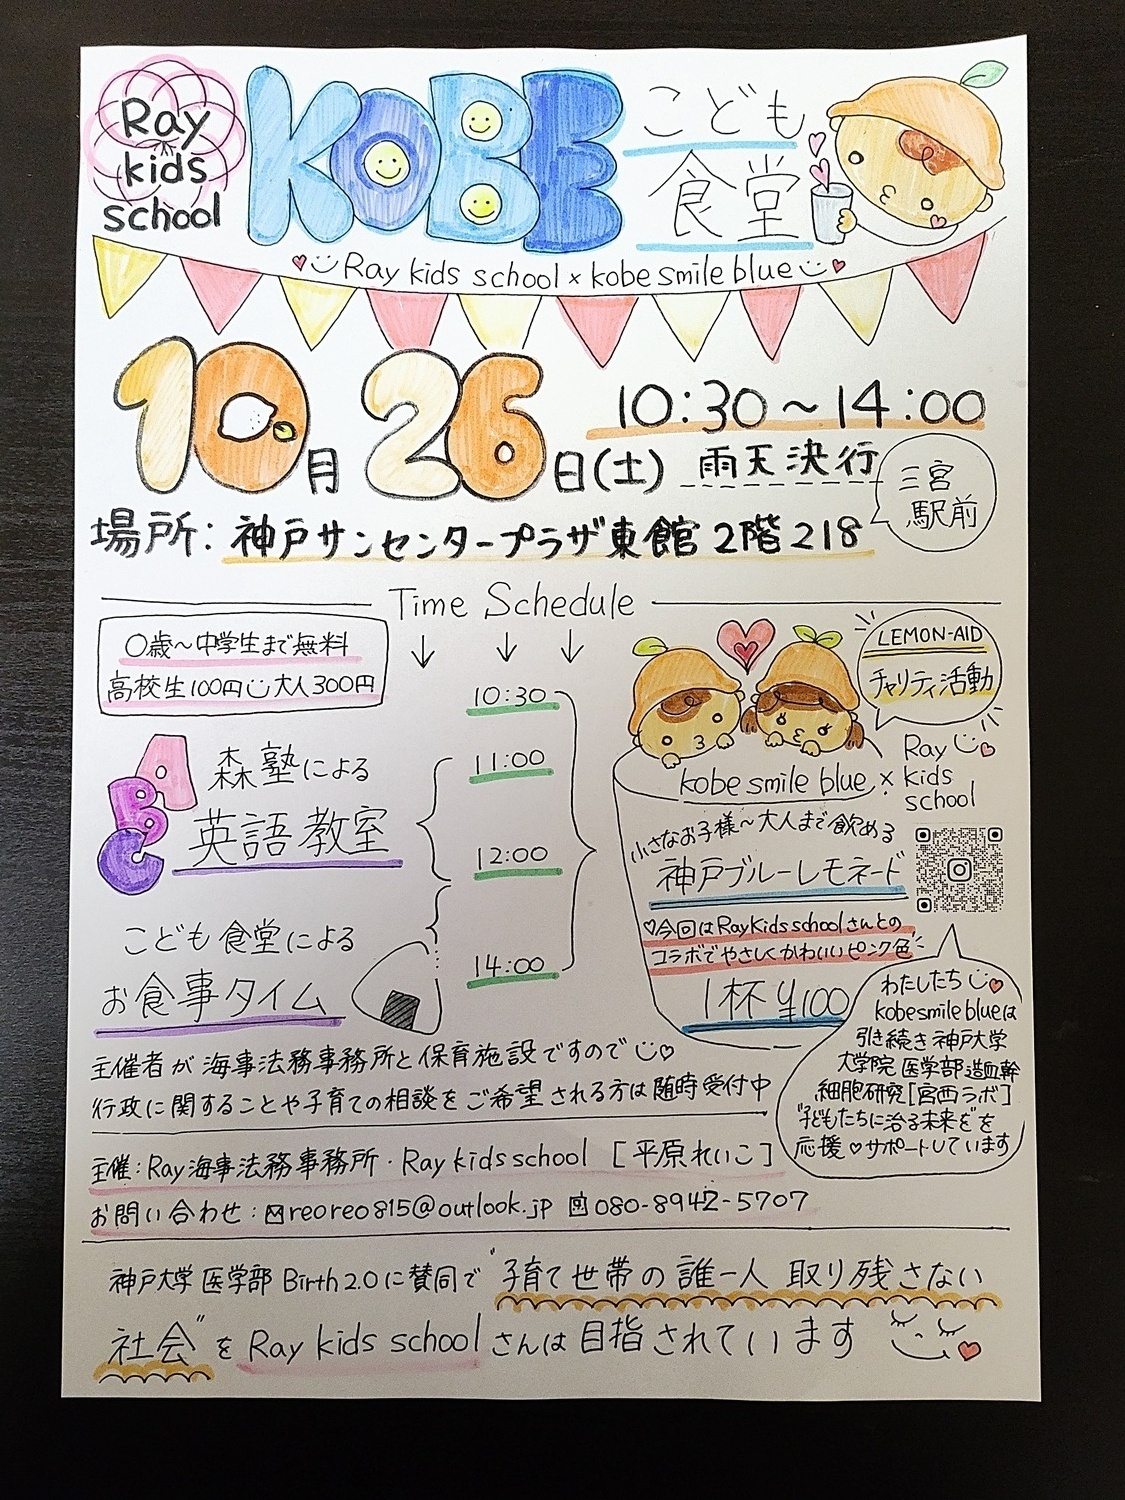 Ray
kids
school
KOBE
こども
食堂
Ray kids school × kobe smile blue
10月26日(土)
10:30～14:00
雨天決行
三宮
駅前
場所：神戸サンセンタープラザ東館2階218
Time Schedule
0歳～中学生まで無料
高校生100円 大人300円
10:30
11:00
12:00
14:00
ABC
森塾による
英語教室
こども食堂による
お食事タイム
LEMON-AID
チャリティ活動
kobe smile blue ×
Ray
kids
school
小さなお子様～大人まで飲める
神戸ブルーレモネード
♡今回はRay Kids schoolさんとの
コラボでやさしくかわいいピンク色
1杯¥100
わたしたち
kobe smile blueは
引き続き神戸大学
大学院医学部造血幹
細胞研究[宮西ラボ]
"子どもたちに治る未来を"を
応援♡サポートしています
主催者が海事法務事務所と保育施設ですので
行政に関することや子育ての相談をご希望される方は随時受付中
主催：Ray海事法務事務所・Ray kids school [平原れいこ]
お問い合わせ：✉reoreo815@outlook.jp ☎080-8942-5707
神戸大学医学部Birth2.0に賛同で"子育て世帯の誰一人取り残さない
社会"をRay kids schoolさんは目指されています